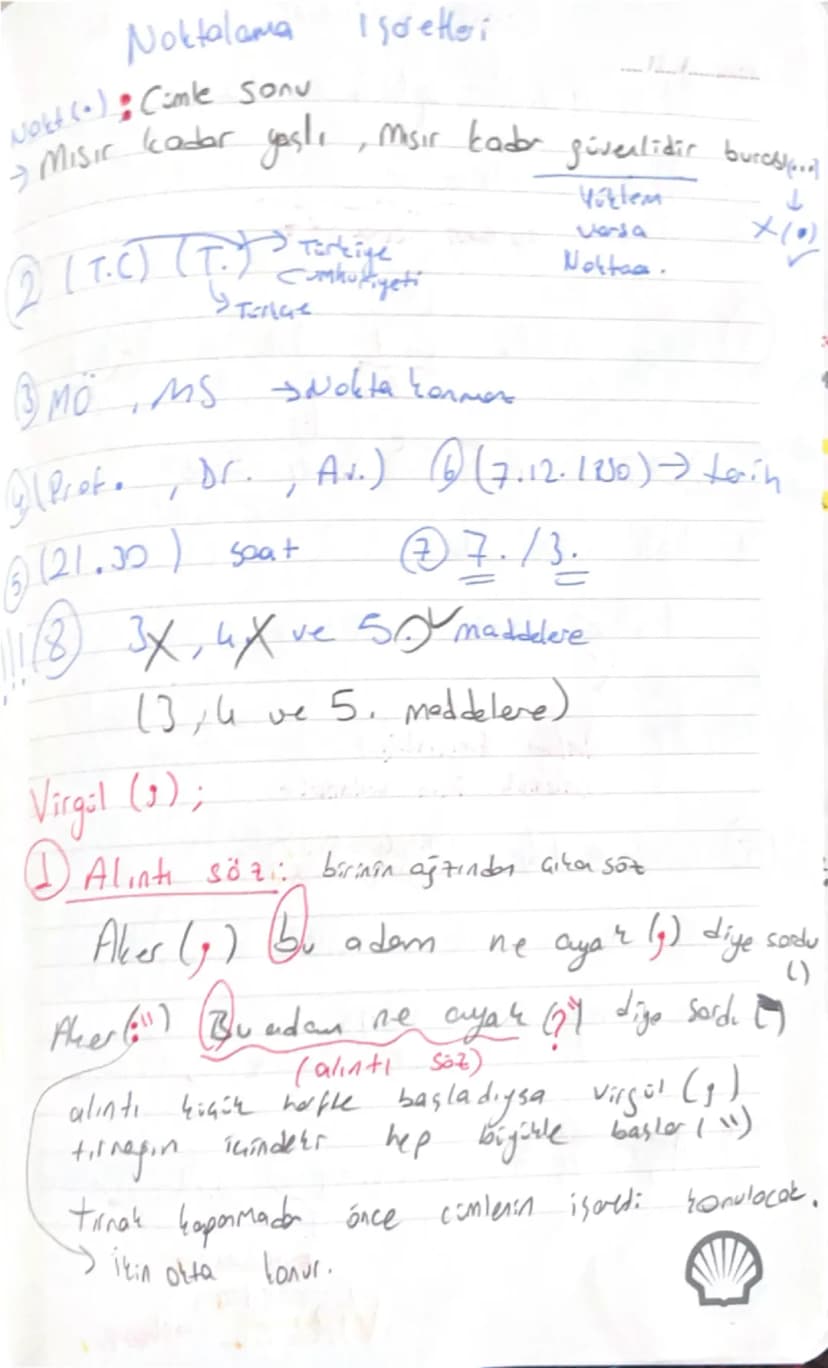 Noktalama İşaretleri
Nokt(.) : Cümle sonu
→ Mısır kadar yaşlı , Mısır kadar güvenlidir burası(...)
Yüklem ↓
varsa X(.)
Noktaa. ✓
② (T.C) (T.) → Türkiye
Cumhuriyeti
↳ Türkçe
③ MÖ , MS → Nokta konmaz
4 (Prof. , Dr. , Av.) ⑥ (7.12.1980) → tarih
⑤ (21.30) saat ⑦ 7. / 3.
!!! ⑧ 3X , 4X ve 5. ✓ maddelere
(3 , 4 ve 5. maddelere)
Virgül (,) ;
① Alıntı sözü: birinin ağzından çıkan söz
Aker (,) bu adam ne ayak (,) diye sordu
(.)
Aker (:") Bu adam ne ayak (?") diye sordu
(alıntı söz)
alıntı küçük harfle başladıysa virgül (,)
tırnağın içindeki hep büyükle başlar (")
tırnak kapanmadan önce cümlenin işareti konulacak.
→ İkin okta konur.